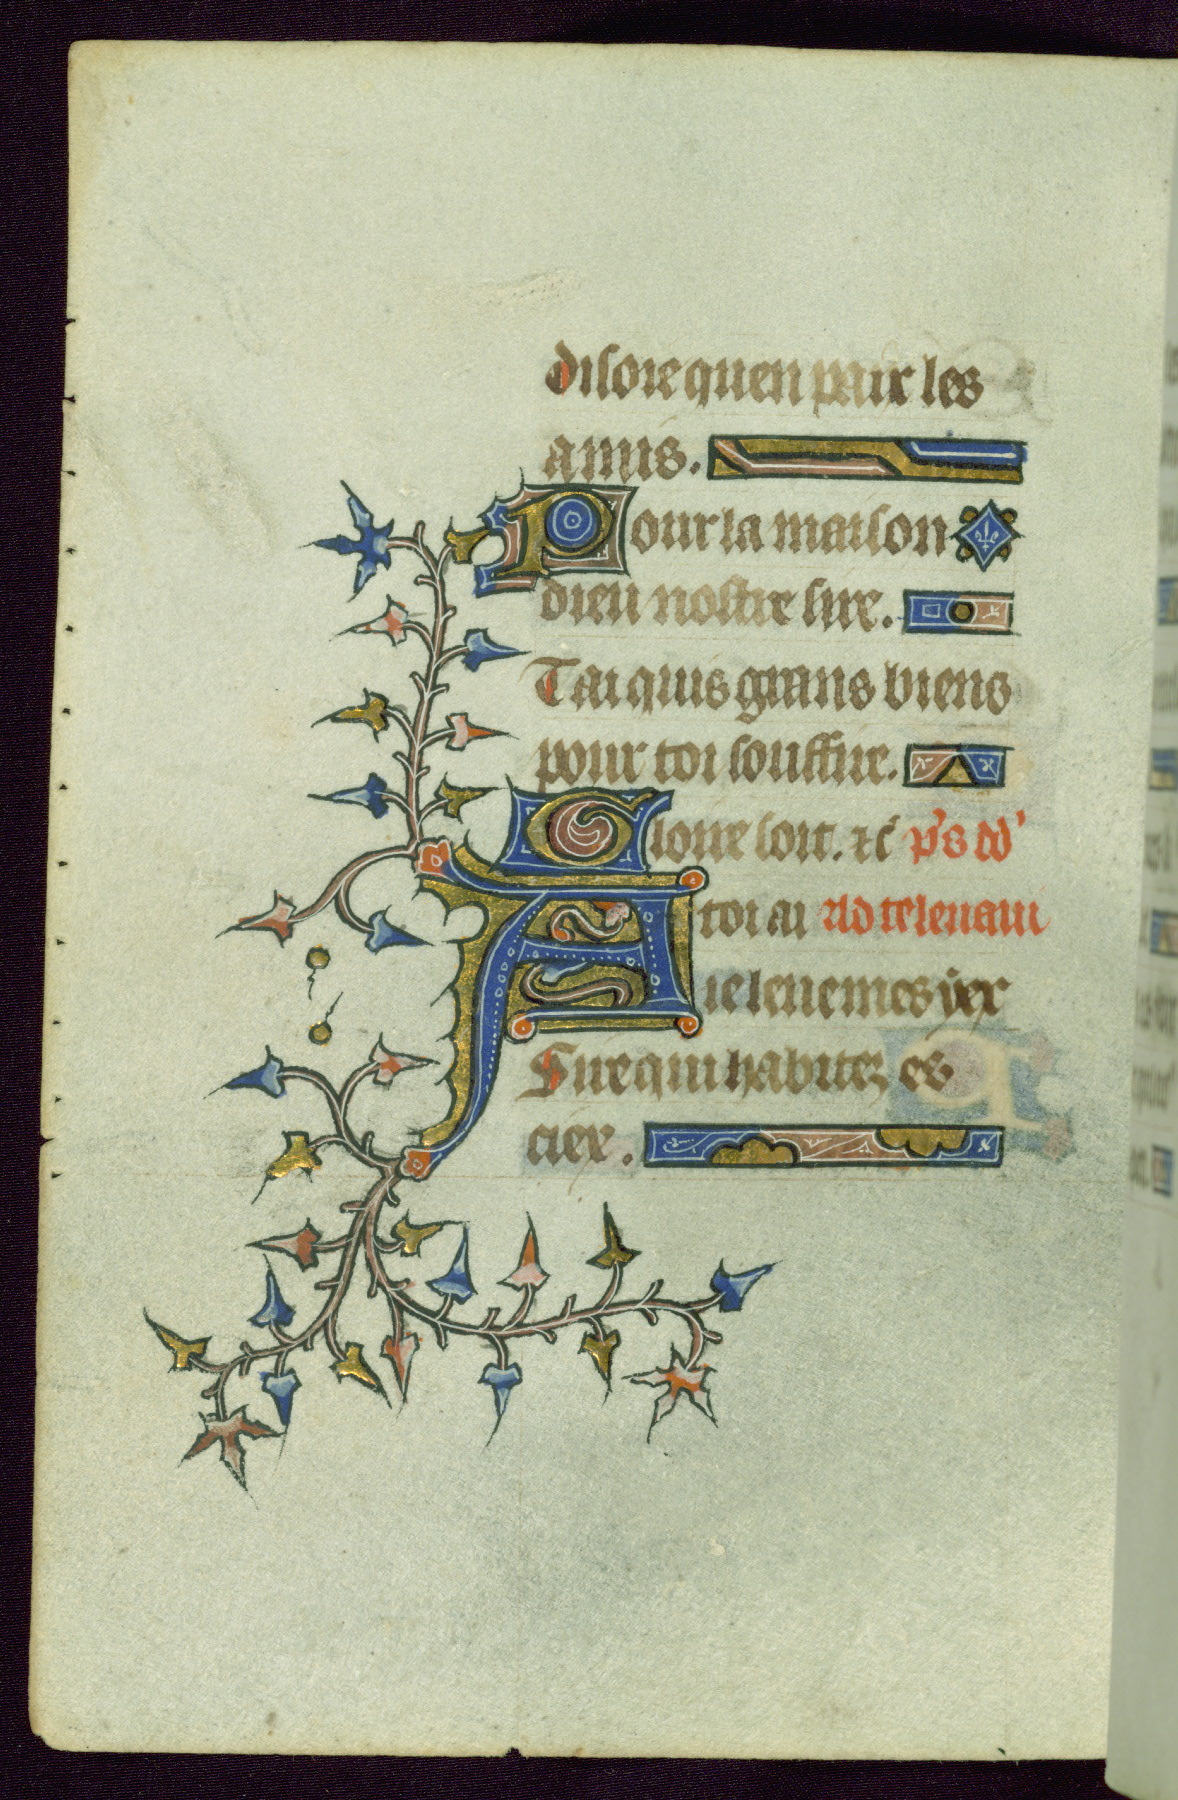 disore quen paix les
amis.
Pour la maison
dieu nostre sire.
Tai quis grans biens
pour toi souffire.
Gloire soit. ⁊c̄ p̄s dd'
A toi ai Ad te leuaui
ie leue mes iex
Sire qui habitez es
ciex.